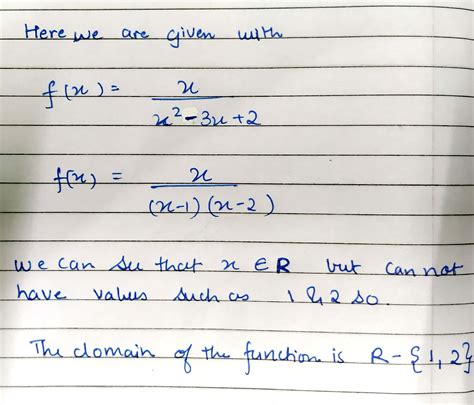 Here we are given with
f(x) = x / x² - 3x + 2
f(x) = x / (x-1) (x-2)
we can see that x ∈ R but can not
have values such as 1 & 2 so.
The domain of the function is R - {1, 2}